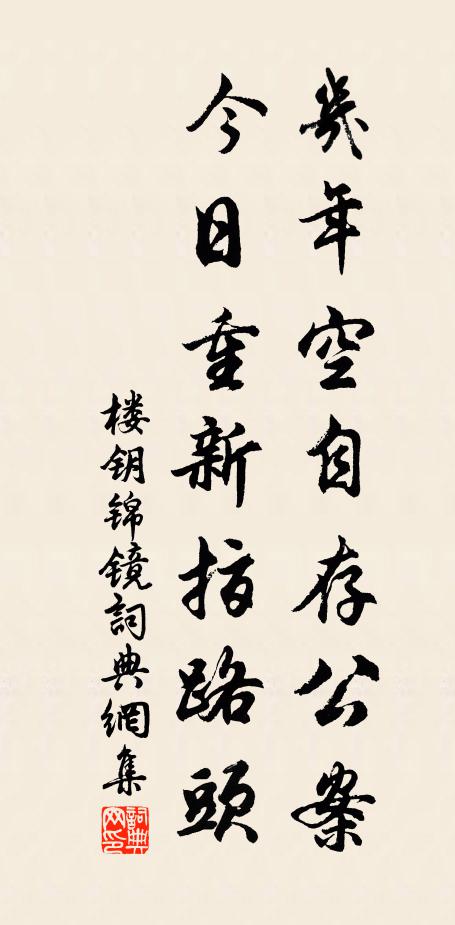 幾年空自存公案
今日重新指路頭
楼钥锦镜詞典網集
詞典
网印